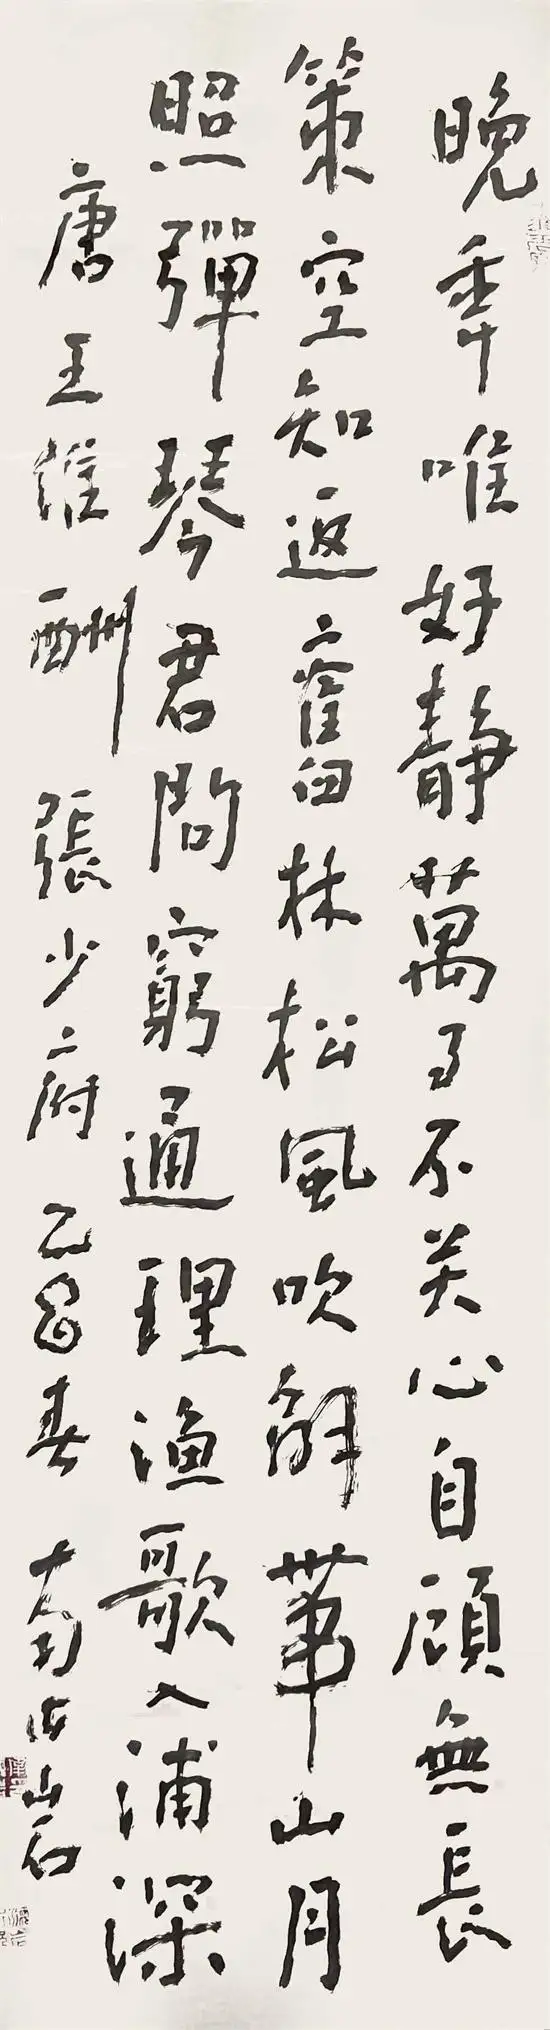 晚年唯好靜萬事不关心自顧無長
策空知返舊林松風吹解带山月
照彈琴君問窮通理漁歌入浦深
唐王維酬張少府乙酉春